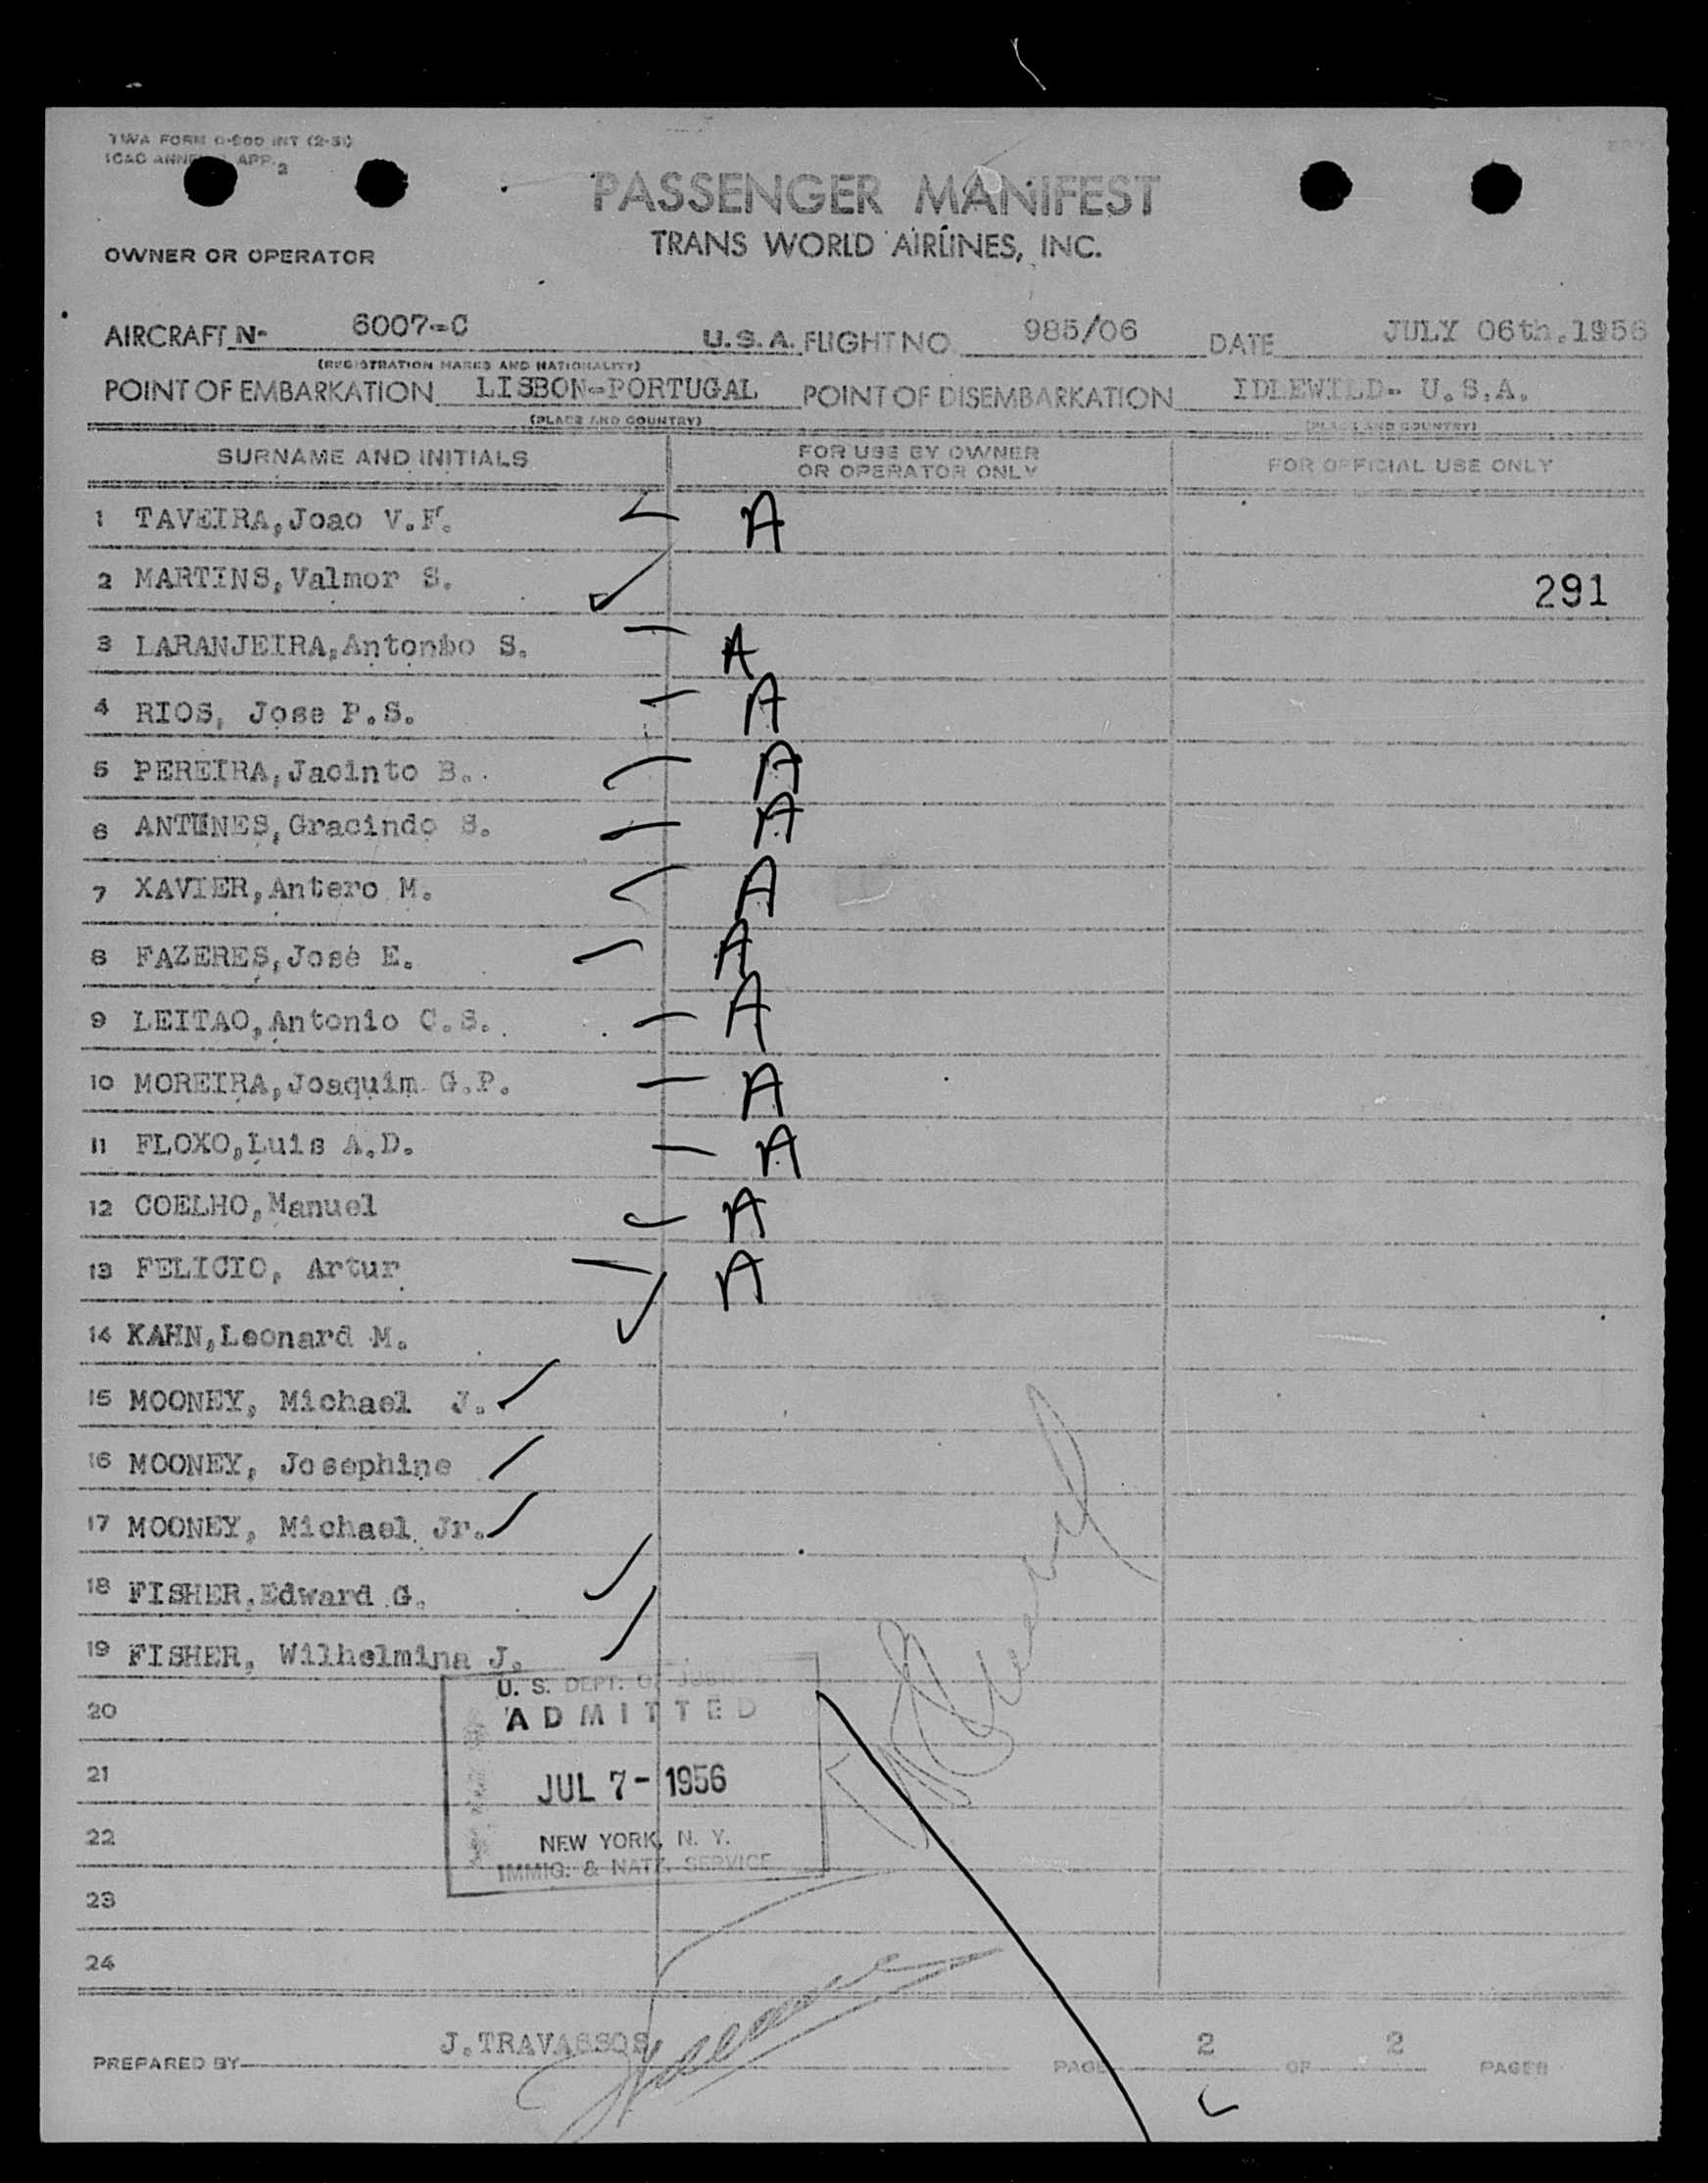 TWA FORM O-800 INT (2-51)
ICAO ANNEX APP. 2
PASSENGER MANIFEST
OWNER OR OPERATOR TRANS WORLD AIRLINES, INC.
AIRCRAFT Nº 6007-C U.S.A. FLIGHT NO 985/06 DATE JULY 06th.1956
(REGISTRATION MARKS AND NATIONALITY)
POINT OF EMBARKATION LISBON-PORTUGAL POINT OF DISEMBARKATION IDLEWILD- U.S.A.
(PLACE AND COUNTRY) (PLACE AND COUNTRY)
SURNAME AND INITIALS FOR USE BY OWNER OR OPERATOR ONLY FOR OFFICIAL USE ONLY
1 TAVEIRA,Joao V.F. A
2 MARTINS,Valmor S. 291
3 LARANJEIRA,Antonio S. A
4 RIOS, Jose P.S. A
5 PEREIRA,Jacinto B. A
6 ANTUNES,Gracindo S. A
7 XAVIER,Antero M. A
8 FAZERES,José E. A
9 LEITAO,Antonio C.S. A
10 MOREIRA,Joaquim G.P. A
11 FLOXO,Luis A.D. A
12 COELHO,Manuel A
13 FELICIO, Artur A
14 KAHN,Leonard M.
15 MOONEY, Michael J.
16 MOONEY, Josephine
17 MOONEY, Michael Jr.
18 FISHER,Edward G.
19 FISHER, Wilhelmina J.
U. S. DEPT. OF JUSTICE
20
ADMITTED
21
JUL 7- 1956
22
NEW YORK, N. Y.
IMMIG. & NATZ. SERVICE
23
24
PREPARED BY J.TRAVASSOS PAGE 2 OF 2 PAGES